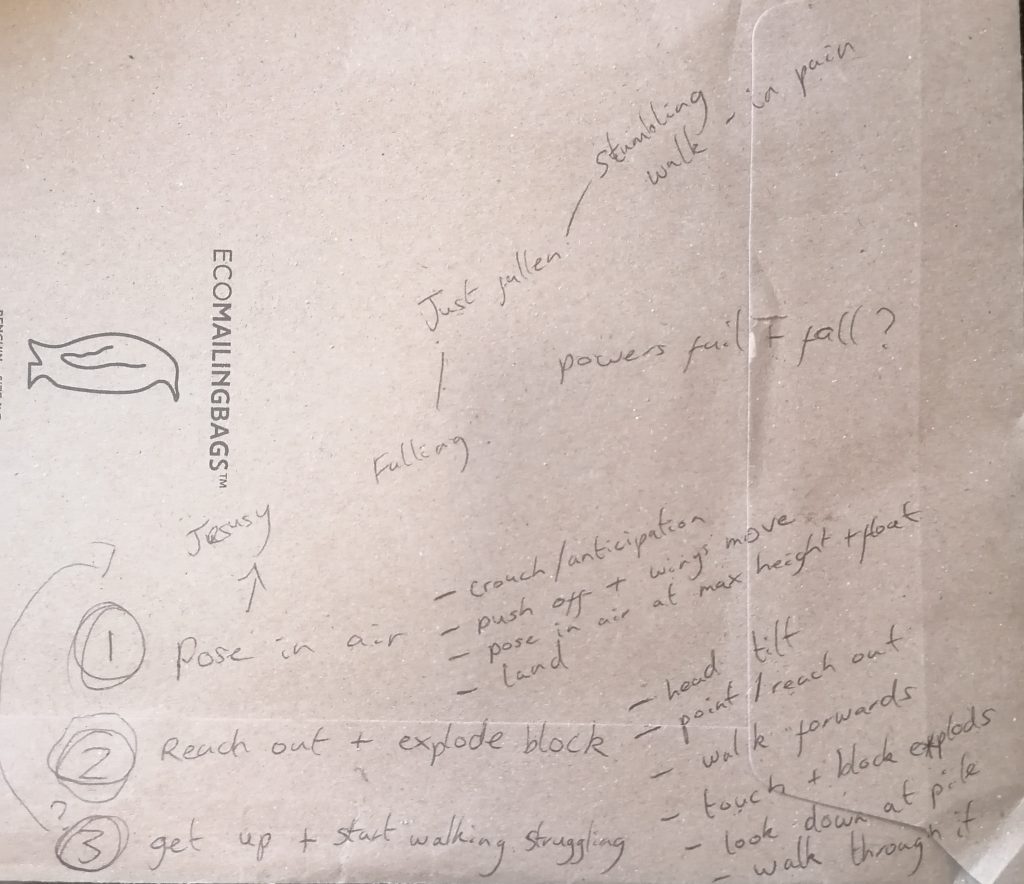 Stumbling
walk - in pain
Just fallen
powers fail + fall?
Falling
ECOMAILINGBAGS™
Jesusy
1 Pose in air
- crouch/anticipation
- push off + wings move
- pose in air at max height + float
- land
2 Reach out + explode block
- head tilt
- point/reach out
- walk forwards
- touch + block explods
- look down at pile
- walk through it
?
3 get up + start walking struggling